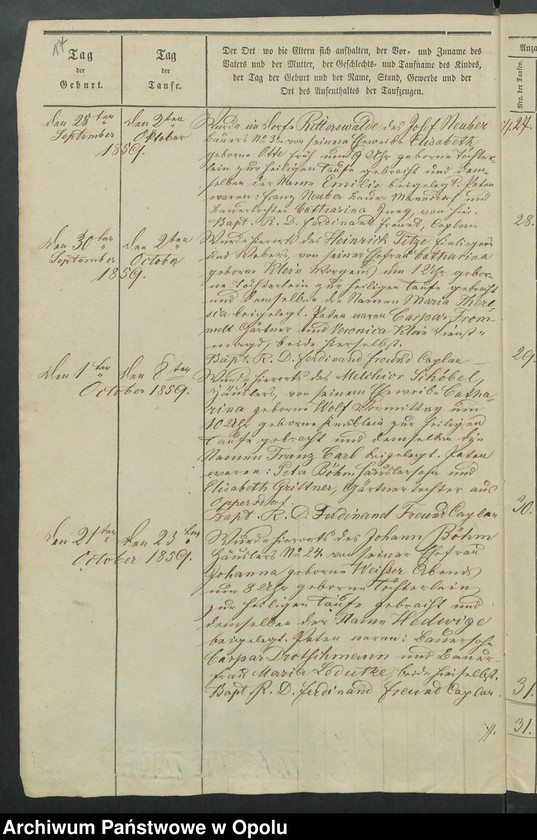 14
Tag
der
Geburt.
Tag
der
Taufe.
Der Ort wo die Eltern sich aufhalten, der Vor- und Zuname des
Vaters und der Mutter, der Geschlechts- und Taufname des Kindes,
der Tag der Geburt und der Name, Stand, Gewerbe und der
Ort des Aufenthaltes der Taufzeugen.
Anza
Nro. der Taufen.
den 28ten
September
1859.
den 2ten
Oktober
Wurde im Dorfe Ritterswalde des Josef Neuber
Bauers No 3 von seinem Eheweibe Elisabeth,
geborne Otte früh um 9 Uhr geborne Töchter-
lein zur heiligen Taufe gebracht und dem-
selben der Name Emilie beigelegt. Paten
waren: Franz Neuber Bauer und
Bauertochter Catharina von hier.
Bapt. R. D. Ferdinand Freund, Caplan
27.
Den 30ten
September
1859.
den 2ten
October
Wurde hierorts des Heinrich Titze Einliegers
und Webers, von seiner Ehefrau Catharina
geborne Klein Morgens um 1 Uhr gebor-
ne Töchterlein zur heiligen Taufe gebracht
und demselben der Namen Maria There-
sia beigelegt. Paten waren Caspar From-
melt Gärtner und Veronica Klein Dienst-
magd, beide hierselbst.
Bapt. R. D. Ferdinand Freund Caplan
28.
Den 1ten
October 1859.
den 8ten
Wurde hierorts des Melchior Schöbel,
Häuslers, von seinem Eheweibe Catha-
rina geborne Wolf Vormittag um
10 Uhr geborne Knäblein zur heiligen
Taufe gebracht und demselben die
Namen Franz Carl beigelegt. Paten
waren: Peter Böhm Häuslersohn und
Elisabeth Grittner, Gärtnertochter aus
Oppersdorf.
Bapt. R. D. Ferdinand Freund Caplan
29.
Den 21ten
October 1859.
den 23ten
Wurde hierorts des Johann Böhm
Häuslers No 24, von seiner Ehefrau
Johanna geborne Weißer Abends
um 8 Uhr geborne Töchterlein
zur heiligen Taufe gebracht und
demselben der Name Hedwige
beigelegt. Paten waren: Bauersohn
Caspar Drotschmann und Bauer-
frau Maria, beide hierselbst.
Bapt. R. D. Ferdinand Freund Caplan
30.
31.
31.
Archiwum Państwowe w Opolu